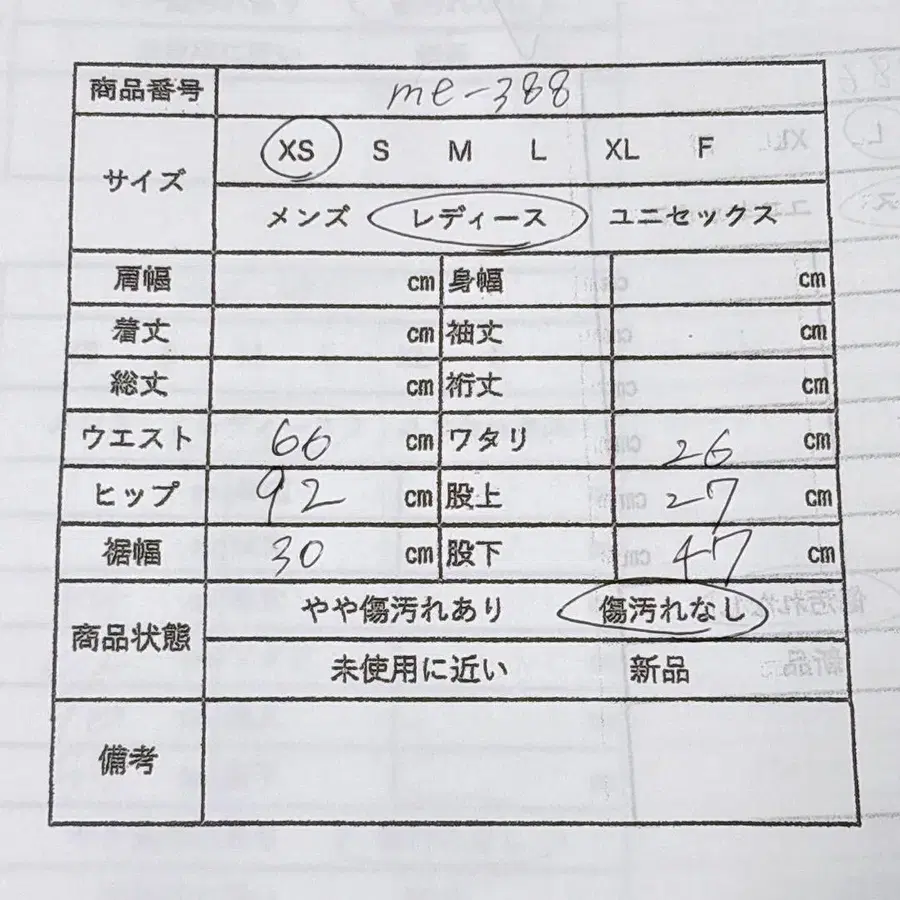 商品番号 me-388
サイズ XS S M L XL F
メンズ レディース ユニセックス
肩幅 cm 身幅 cm
着丈 cm 袖丈 cm
総丈 cm 裄丈 cm
ウエスト 66 cm ワタリ 26 cm
ヒップ 92 cm 股上 27 cm
裾幅 30 cm 股下 47 cm
商品状態 やや傷汚れあり 傷汚れなし
未使用に近い 新品
備考